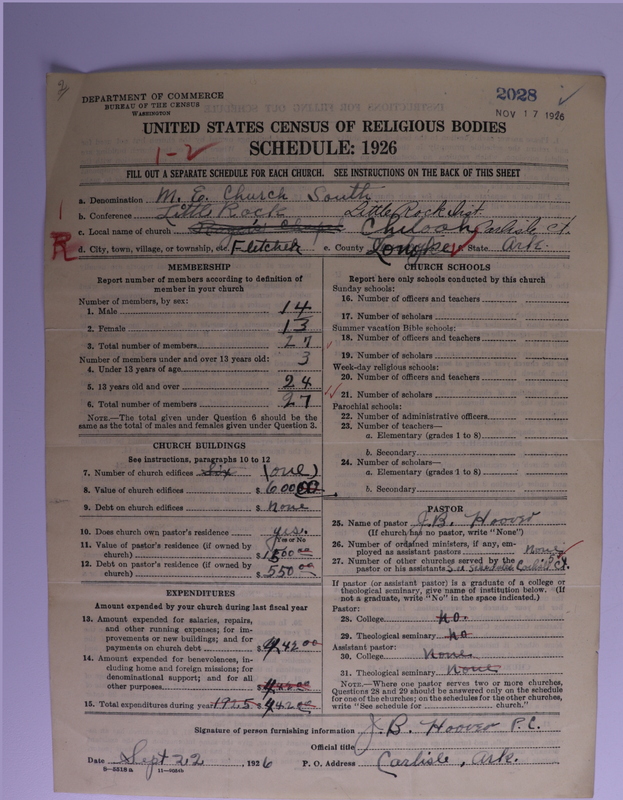 DEPARTMENT OF COMMERCE
BUREAU OF THE CENSUS
WASHINGTON
2028
NOV 17 1926
UNITED STATES CENSUS OF RELIGIOUS BODIES
1-2
SCHEDULE: 1926
FILL OUT A SEPARATE SCHEDULE FOR EACH CHURCH. SEE INSTRUCTIONS ON THE BACK OF THIS SHEET
a. Denomination M. E. Church South
b. Conference Little Rock Little Rock Dist.
c. Local name of church Chapel Carlisle Ct.
R
d. City, town, village, or township, etc. Fletcher e. County Lonoke f. State Ark.
MEMBERSHIP
Report number of members according to definition of member in your church
Number of members, by sex:
1. Male 14
2. Female 13
3. Total number of members 27
Number of members under and over 13 years old:
4. Under 13 years of age 3
5. 13 years old and over 24
6. Total number of members 27
NOTE.—The total given under Question 6 should be the same as the total of males and females given under Question 3.
CHURCH BUILDINGS
See instructions, paragraphs 10 to 12
7. Number of church edifices Six (one)
8. Value of church edifices $ 600 00
9. Debt on church edifices $ none
10. Does church own pastor's residence? yes.
Yes or No
11. Value of pastor's residence (if owned by church) $ 1500 00
12. Debt on pastor's residence (if owned by church) $ 550 00
EXPENDITURES
Amount expended by your church during last fiscal year
13. Amount expended for salaries, repairs, and other running expenses; for improvements or new buildings; and for payments on church debt $ 42 00
14. Amount expended for benevolences, including home and foreign missions; for denominational support; and for all other purposes $
15. Total expenditures during year 1925 $ 42 00
CHURCH SCHOOLS
Report here only schools conducted by this church
Sunday schools:
16. Number of officers and teachers
17. Number of scholars
Summer vacation Bible schools:
18. Number of officers and teachers
19. Number of scholars
Week-day religious schools:
20. Number of officers and teachers
21. Number of scholars
Parochial schools:
22. Number of administrative officers
23. Number of teachers—
a. Elementary (grades 1 to 8)
b. Secondary
24. Number of scholars—
a. Elementary (grades 1 to 8)
b. Secondary
PASTOR
25. Name of pastor J. B. Hoover
(If church has no pastor, write "None")
26. Number of ordained ministers, if any, employed as assistant pastors None
27. Number of other churches served by the pastor or his assistants See Schedule Carlisle Ct.
If pastor (or assistant pastor) is a graduate of a college or theological seminary, give name of institution below. (If not a graduate, write "No" in the space indicated.)
Pastor:
28. College no.
29. Theological seminary no
Assistant pastor:
30. College None
31. Theological seminary None
NOTE.—Where one pastor serves two or more churches, Questions 28 and 29 should be answered only on the schedule for one of the churches; on the schedules for the other churches, write "See schedule for church."
Signature of person furnishing information J. B. Hoover P.C.
Official title
Date Sept 22, 1926 P. O. Address Carlisle, Ark.
8-5518a 11-9024b